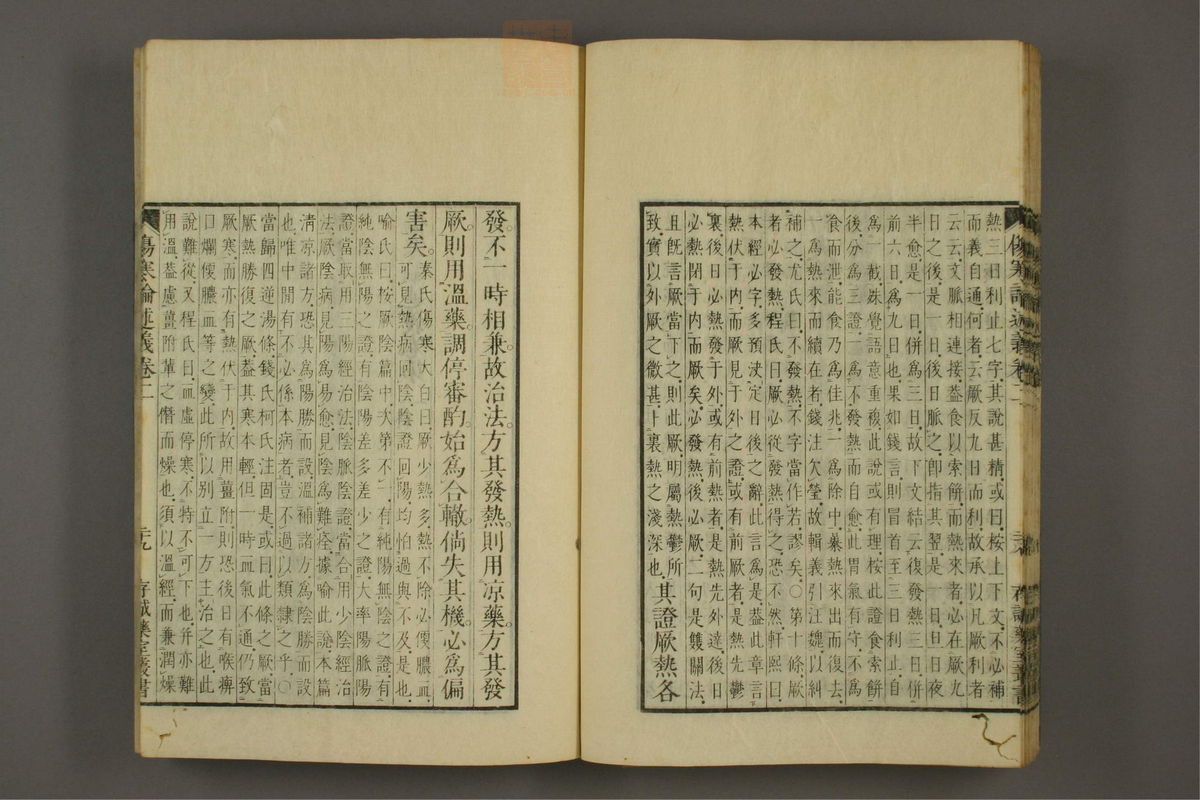 熱三日利止七字其說甚精或曰按上下文不必補
而義自通何者云厥反九日而利故承以凡厥利者
云云文脈相連接蓋食以索餅而熱來者必在厥九
日之後是一日後日脈之卽指其翌是一日旦日夜
半愈是一日併爲三日故下文結云復發熱三日併
前六日爲九日也果如錢言則冒首至三日利止自
爲一截殊覺語意重複此說或有理按此證食索餅
後分爲三證一爲不發熱而自愈此胃氣有守不爲
食而泄能食乃爲佳兆一爲除中暴熱來出而復去
一爲熱來而續在者錢注欠瑩故輯義引汪魏以糾
補之尤氏曰不發熱不字當作若謬矣○第十條厥
者必發熱程氏曰厥必從發熱得之恐不然軒熙曰
本經必字多預決定日後之辭此言爲是蓋此章言
熱伏于内而厥見于外之證或有前厥者是熱先鬱
裏後日必熱發于外或有前熱者是熱先外達後日
必熱閉于内而厥矣必發熱後必厥二句是雙關法
且旣言厥當下之則此厥明屬熱鬱所
致實以外厥之微甚卜裏熱之淺深也其證厥熱各
發不一時相兼故治法方其發熱則用凉藥方其發
厥則用溫藥調停審酌始爲合轍倘失其機必爲偏
害矣秦氏傷寒大白曰厥少熱多熱不除必便膿血
可見熱病回陰陰證回陽均怕過與不及是也
喻氏曰按厥陰篇中次第不一有純陽無陰之證有
純陰無陽之證有陰陽差多差少之證大率陽脈陽
證當取用三陽經治法陰脈陰證當合用少陰經治
法厥陰病見陽爲易愈見陰爲難痊據喻此說本篇
淸凉諸方恐其爲陽勝而設溫補諸方爲陰勝而設
也唯中閒有不必係本病者豈不過以類隸之乎○
當歸四逆湯條錢氏柯氏注固是或曰此條之厥當
厥熱勝復之厥蓋其寒本輕但一時血氣不通仍致
厥寒而亦有熱伏于内故用薑附則恐後日有喉痺
口爛便膿血等之變此所以別立一方主治之也此
說難從又程氏曰血虛停寒不特不可下也幷亦難
用溫蓋慮薑附輩之僭而燥也須以溫經而兼潤燥
傷寒論述義卷二
二十九
存誠藥室叢書